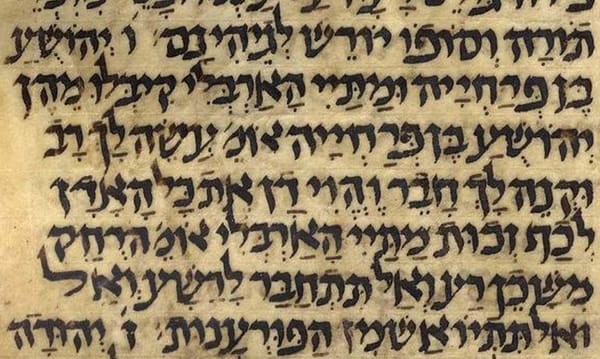 תורה וסופו יורש לגיהינם ו יהושע
בן פרחייה ומתיי הארבלי קיבלו מהן
יהושע בן פרחייה אומ׳ עשה לך רב
וקנה לך חבר והוי דן את כל האדן
לכף זכות מתיי הארבלי אומ׳ הרחק
משכן רע ואל תתחבר לרשע ואל
ואל תתייאש מן הפורענות ז יהודה